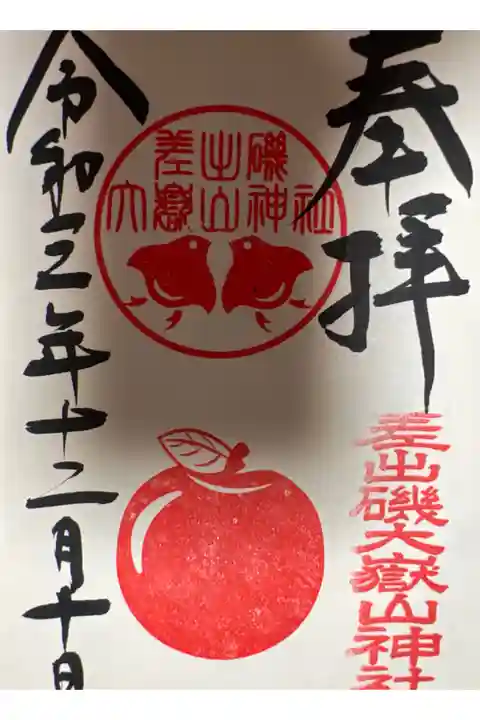 奉拝
差出磯大嶽山神社
差出磯
大嶽山神社
令和三年十二月十日